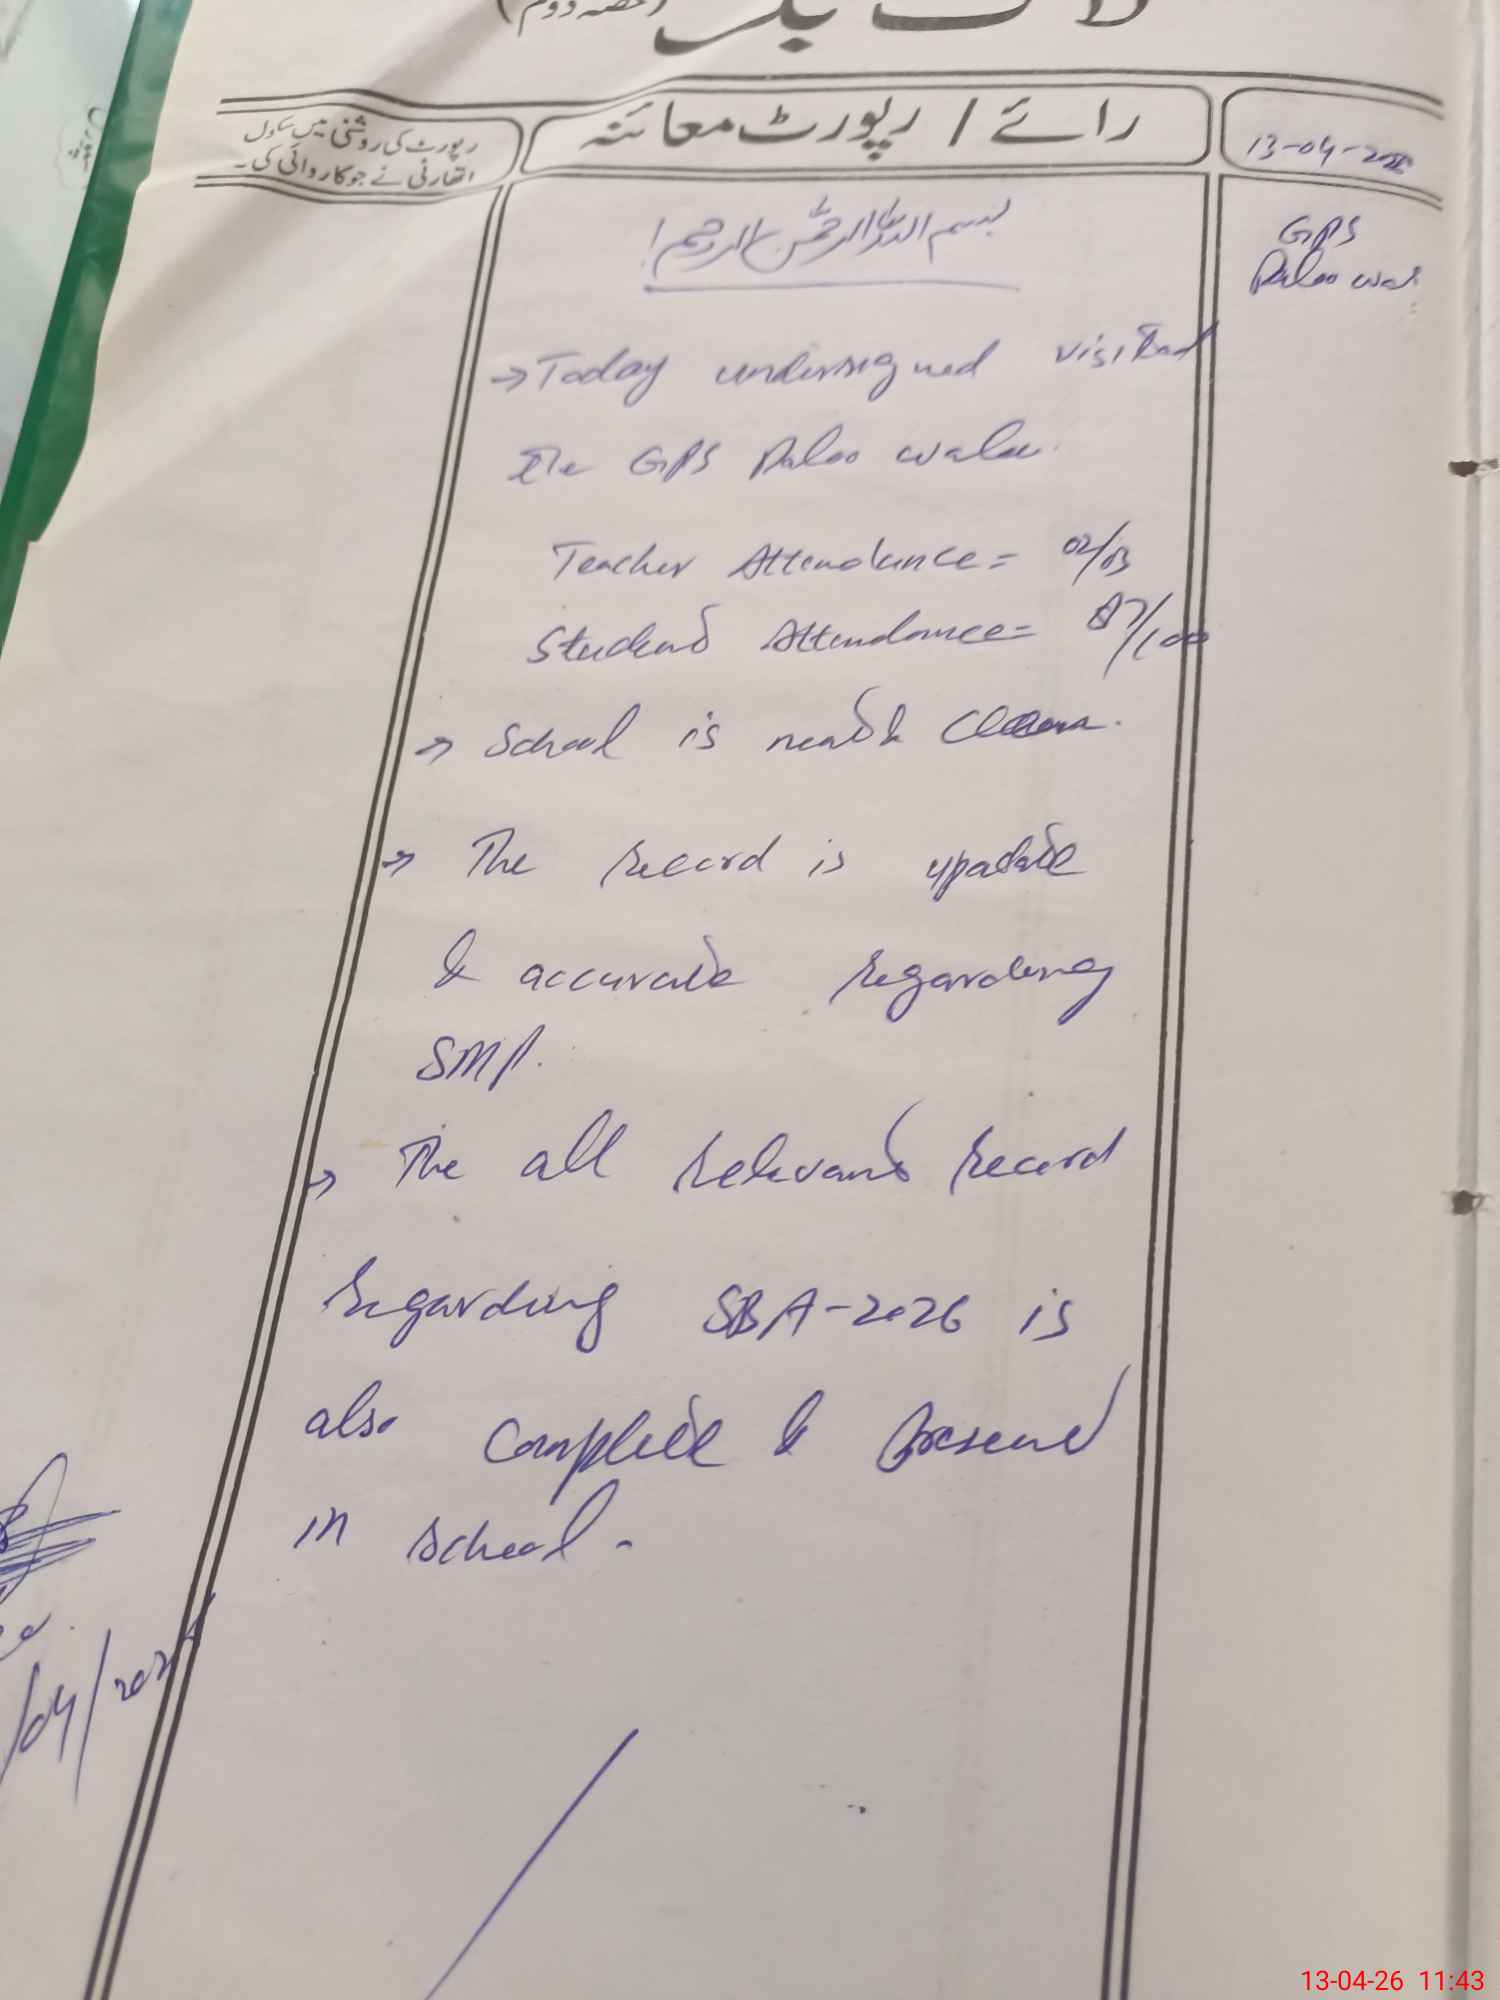 لاگ بک (حصہ دوم)
رائے / رپورٹ معائنہ
رپورٹ کی روشنی میں سکول
اتھارٹی نے جو کاروائی کی۔
13-04-2026
GPS
Paloo wal
بسم اللہ الرحمٰن الرحیم!
→ Today undersigned visited
the GPS Paloo wala.
Teacher Attendance = 02/03
Student Attendance = 87/100
→ School is neat & Clean.
→ The record is update
& accurate regarding
SMP.
→ The all relevant record
regarding SBA-2026 is
also complete & Present
in school.
/04/202
13-04-26 11:43